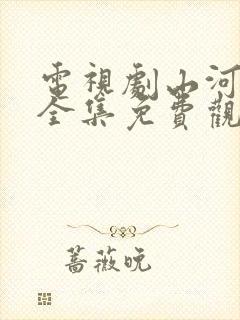 電視劇山河
全集免費觀
薔薇晚